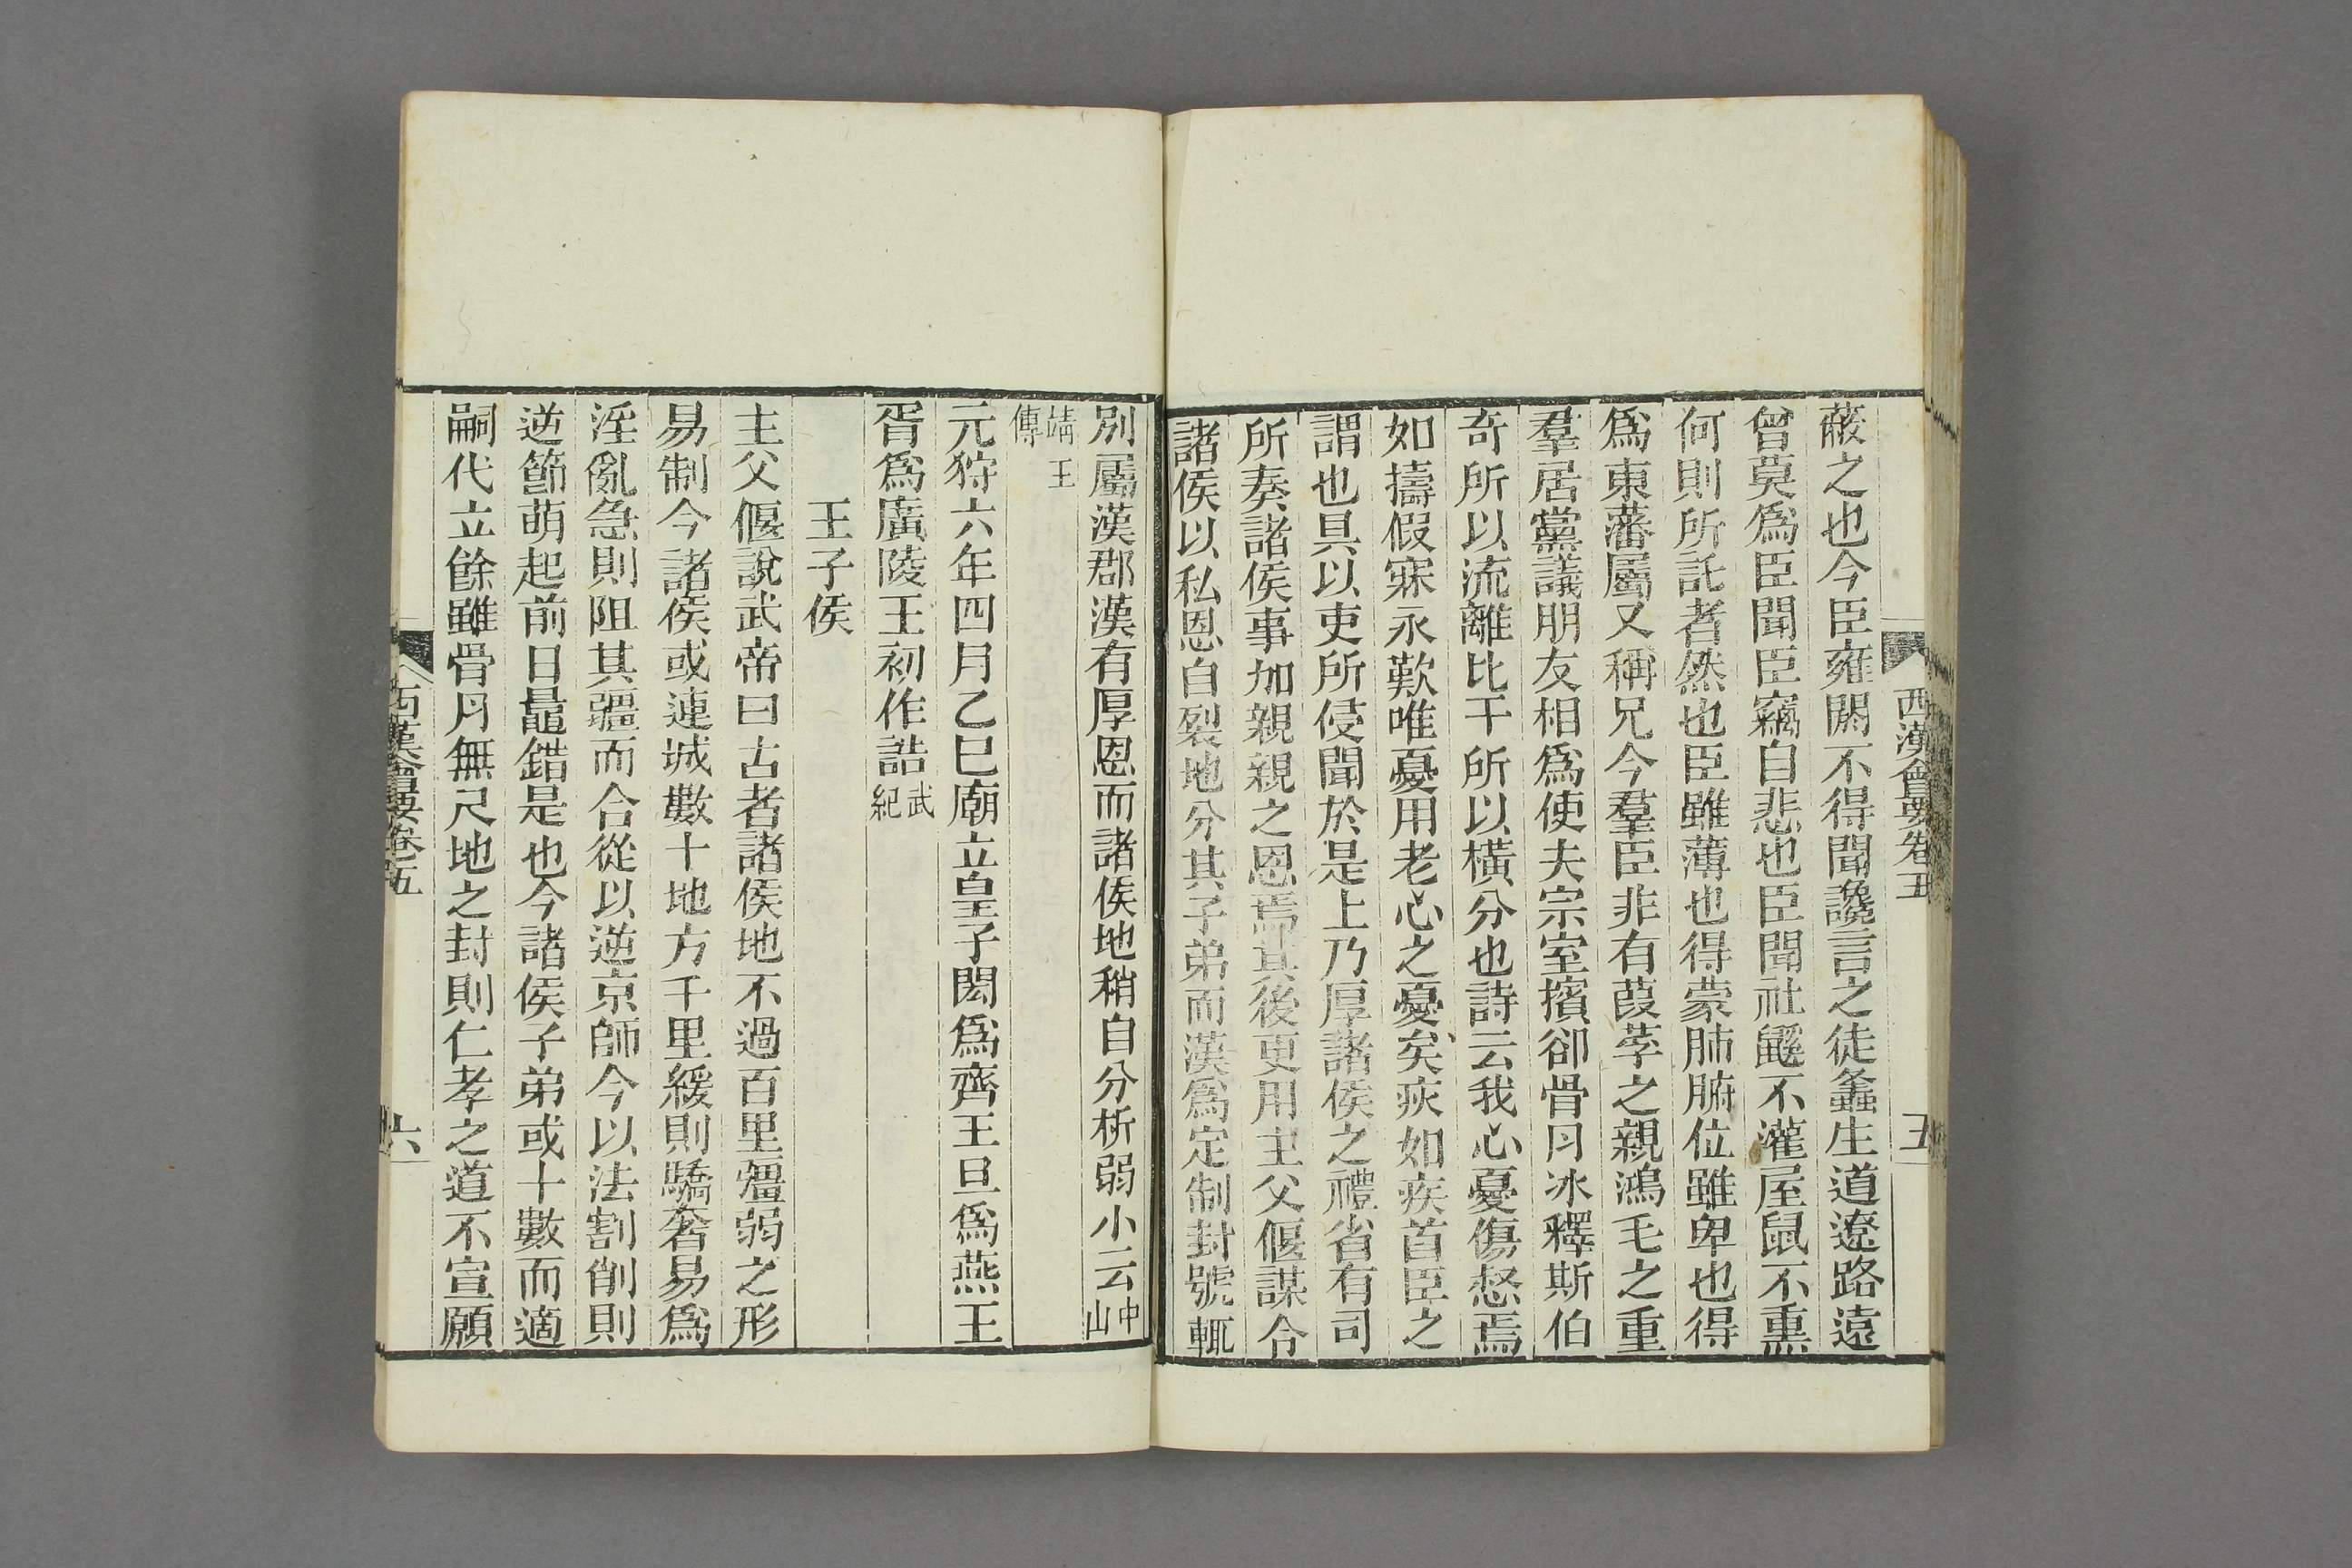 西漢會要卷五
五
蔽之也今臣雍閼不得聞讒言之徒蠭生道遼路遠
曾莫爲臣聞臣竊自悲也臣聞社鼷不灌屋鼠不熏
何則所託者然也臣雖薄也得蒙肺腑位雖卑也得
爲東藩屬又稱兄今羣臣非有葭莩之親鴻毛之重
羣居黨議朋友相爲使夫宗室擯卻骨月冰釋斯伯
奇所以流離比干所以橫分也詩云我心憂傷惄焉
如擣假寐永歎唯憂用老心之憂矣疢如疾首臣之
謂也具以吏所侵聞於是上乃厚諸侯之禮省有司
所奏諸侯事加親親之恩焉其後更用主父偃謀令
諸侯以私恩自裂地分其子弟而漢爲定制封號輒
別屬漢郡漢有厚恩而諸侯地稍自分析弱小云中山
靖王傳
元狩六年四月乙巳廟立皇子閎爲齊王旦爲燕王
胥爲廣陵王初作誥武紀
王子侯
主父偃說武帝曰古者諸侯地不過百里彊弱之形
易制今諸侯或連城數十地方千里緩則驕奢易爲
淫亂急則阻其彊而合從以逆京師今以法割削則
逆節萌起前日鼂錯是也今諸侯子弟或十數而適
嗣代立餘雖骨月無尺地之封則仁孝之道不宣願
西漢會要卷五
六